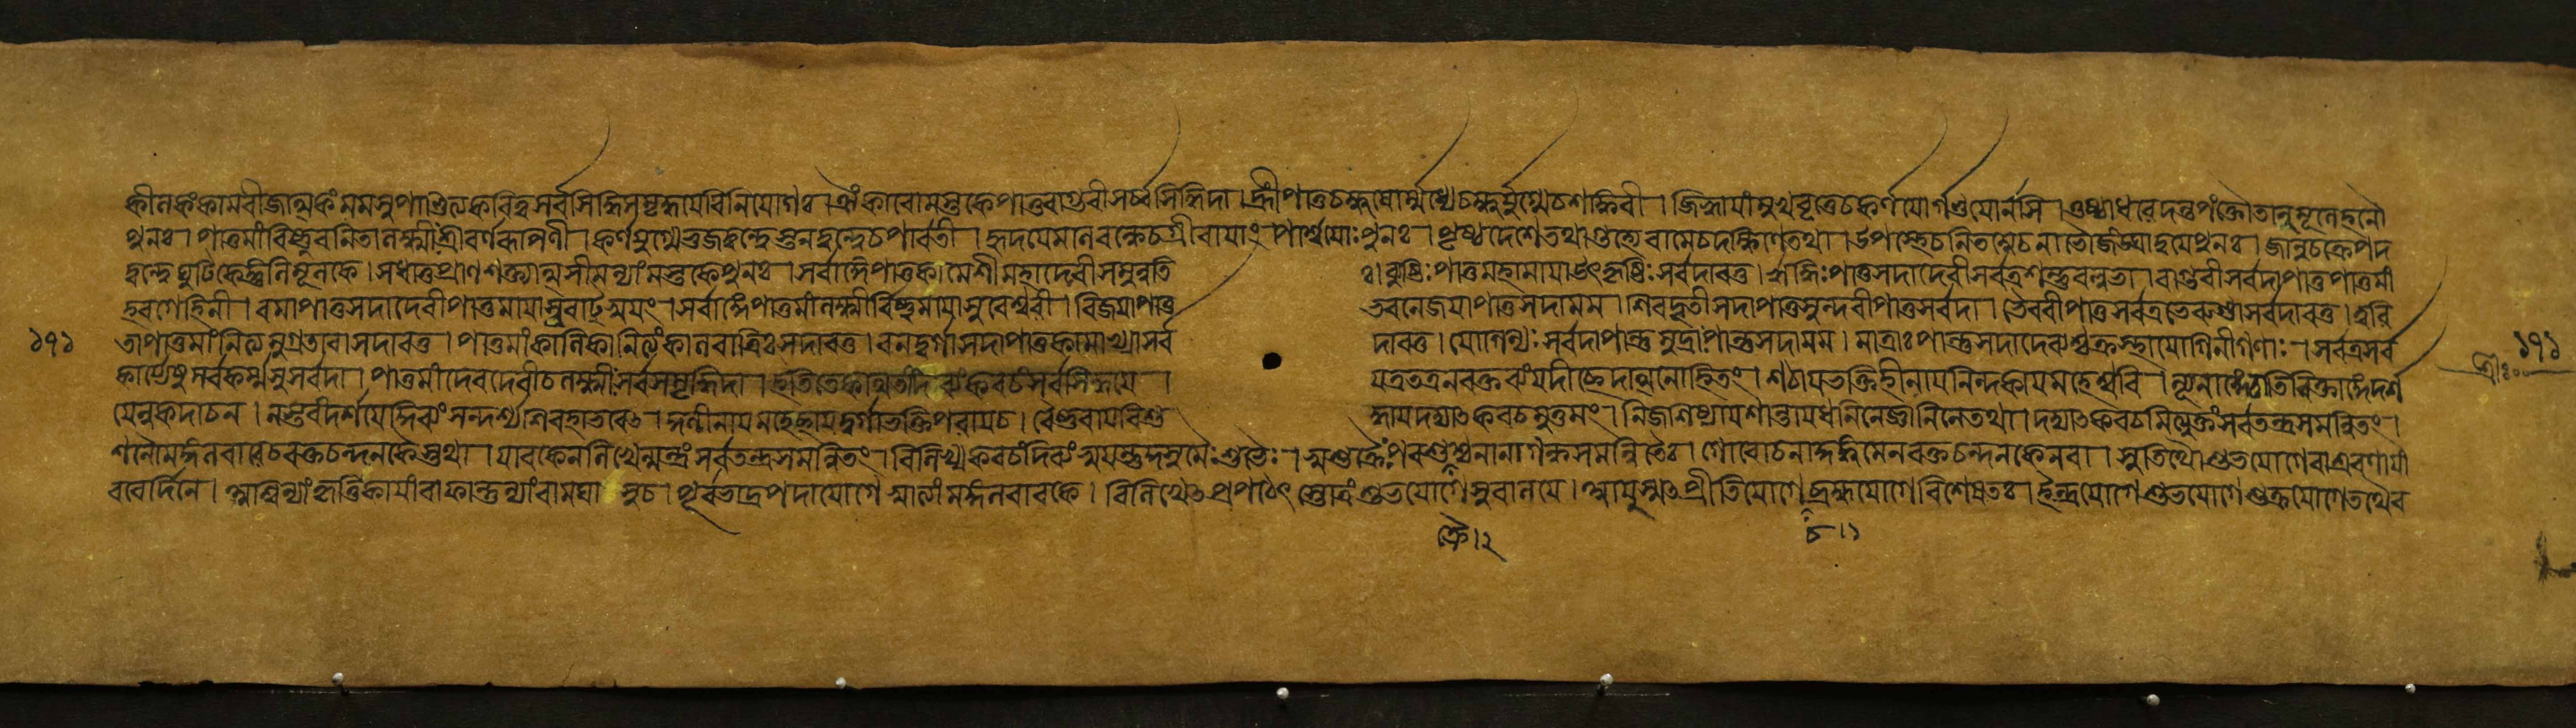 কীলকংকামবীজাত্মকংমমসুপাণ্ডিত্যকবিত্বসর্বসিদ্ধিসমৃদ্ধায়বিনিয়োগঃ। ঐংকারোমস্তকেপাতুবাগ্ভবীসর্ব্বসিদ্ধিদা। হ্রীঁপাতুচক্ষুষোর্ম্মধ্যেচক্ষুর্যুগ্মেচশাঙ্করী। জিহ্বায়াংমুখবৃত্তেচকর্ণয়োর্গণ্ডয়োর্নসি। ওষ্ঠাধরেদন্তপংক্তৌতালুমূলেহনৌ
পুনঃ। পাতুমাংবিষ্ণুবনিতালক্ষ্মীঃশ্রীবর্ণরূপিণী। কর্ণযুগ্মেভুজদ্বন্দ্বেস্তনদ্বন্দ্বেচপার্বতী। হৃদয়েমণিবন্ধেচগ্রীবায়াংপার্শ্বয়োঃপুনঃ। পৃষ্ঠদেশেতথাগুহ্যেবামেচদক্ষিণেতথা। উপস্থেচনিতম্বেচনাভৌজংঘাদ্বয়েপুনঃ। জানুচক্রেপদ
দ্বন্দ্বেঘুটিকেঙ্গুলিমূলকে। স্বধাতুপ্রাণশক্ত্যাত্মসীমন্ত্যাংমস্তকেপুনঃ। সর্বাঙ্গেপাতুকামেশীমহাদেবীসমুন্নতি ঃ। পুষ্টিঃপাতুমহামায়াউৎকৃষ্টিঃসর্বদাবতু। ঋদ্ধিঃপাতুসদাদেবীসর্বত্রশম্ভুবল্লভা। বাগ্ভবীসর্বদাপাতুপাতুমাং
হরগেহিনী। রমাপাতুসদাদেবীপাতুমায়াসুরাট্স্বয়ং। সর্বাঙ্গেপাতুমাংলক্ষ্মীর্বিষ্ণুমায়াসুরেশ্বরী। বিজয়াপাতু ভবনেজয়াপাতুসদামম। শিবদূতীসদাপাতুসুন্দরীপাতুসর্বদা। ভৈরবীপাতুসর্বত্রভেরুণ্ডাসর্বদাবতু। ত্বরি
১৭১ তাপাতুমাংনিত্যমুগ্রতারাসদাবতু। পাতুমাংকালিকানিত্যংকালরাত্রিঃসদাবতু। বনদুর্গাসদাপাতুকামাখ্যাসর্ব দাবতু। যোগিন্যঃসর্বদাপান্তুমুদ্রাঃপান্তুসদামম। মাত্রাঃপান্তুসদাদেব্যশ্চক্রস্থাযোগিনীগণাঃ। সর্বত্রসর্ব ১৭১
কার্য্যেষুসর্বকর্ম্মসুসর্বদা। পাতুমাংদেবদেবীচলক্ষ্মীঃসর্বসমৃদ্ধিদা। ইতিতেকথিতংদিব্যংকবচংসর্বসিদ্ধয়ে। যত্রতত্রনবক্তব্যংযদীছেদাত্মনোহিতং। শঠায়ভক্তিহীনায়নিন্দকায়মহেশ্বরি। ন্যূনাঙ্গেঅতিরিক্তাঙ্গেদর্শ
য়েন্নকদাচন। নস্তবংদর্শয়েদ্দিব্যংসন্দর্শ্যশিবহাভবেৎ। কুলীনায়মহেচ্ছায়দুর্গাভক্তিপরায়চ। বৈষ্ণবায়বিশু দ্ধায়দদ্যাৎকবচমুত্তমং। নিজশিষ্যায়শান্তায়ধনিনেজ্ঞানিনেতথা। দদ্যাৎকবচমিত্যুক্তংসর্বতন্ত্রসমন্বিতং।
শনৌমঙ্গলবারেচরক্তচন্দনকৈস্তথা। যাবকেনলিখেন্মন্ত্রংসর্বতন্ত্রসমন্বিতং। বিলিখ্যকবচংদিব্যংস্বয়ম্ভুকুসুমৈঃশুভৈঃ। স্বশুক্রৈঃপরশুক্রৈশ্চনানাগন্ধসমন্বিতৈঃ। গোরোচনাকুঙ্কুমেনরক্তচন্দনকেনবা। সুতিথৌশুভযোগেবাশ্রবণায়াং
রবের্দিনে। অশ্বিন্যাংকৃত্তিকায়াংবাফাল্গুন্যাংবামঘাসুচ। পূর্বভাদ্রপদাযোগেস্বাত্যাংমঙ্গলবাসরে। বিলিখেৎপ্রপঠেৎস্তোত্রংশুভযোগেসুরালয়ে। আয়ুষ্মৎপ্রীতিযোগেব্রহ্মযোগেবিশেষতঃ। ইন্দ্রযোগেশুভযোগেশুক্রযোগেতথৈব
চ।১